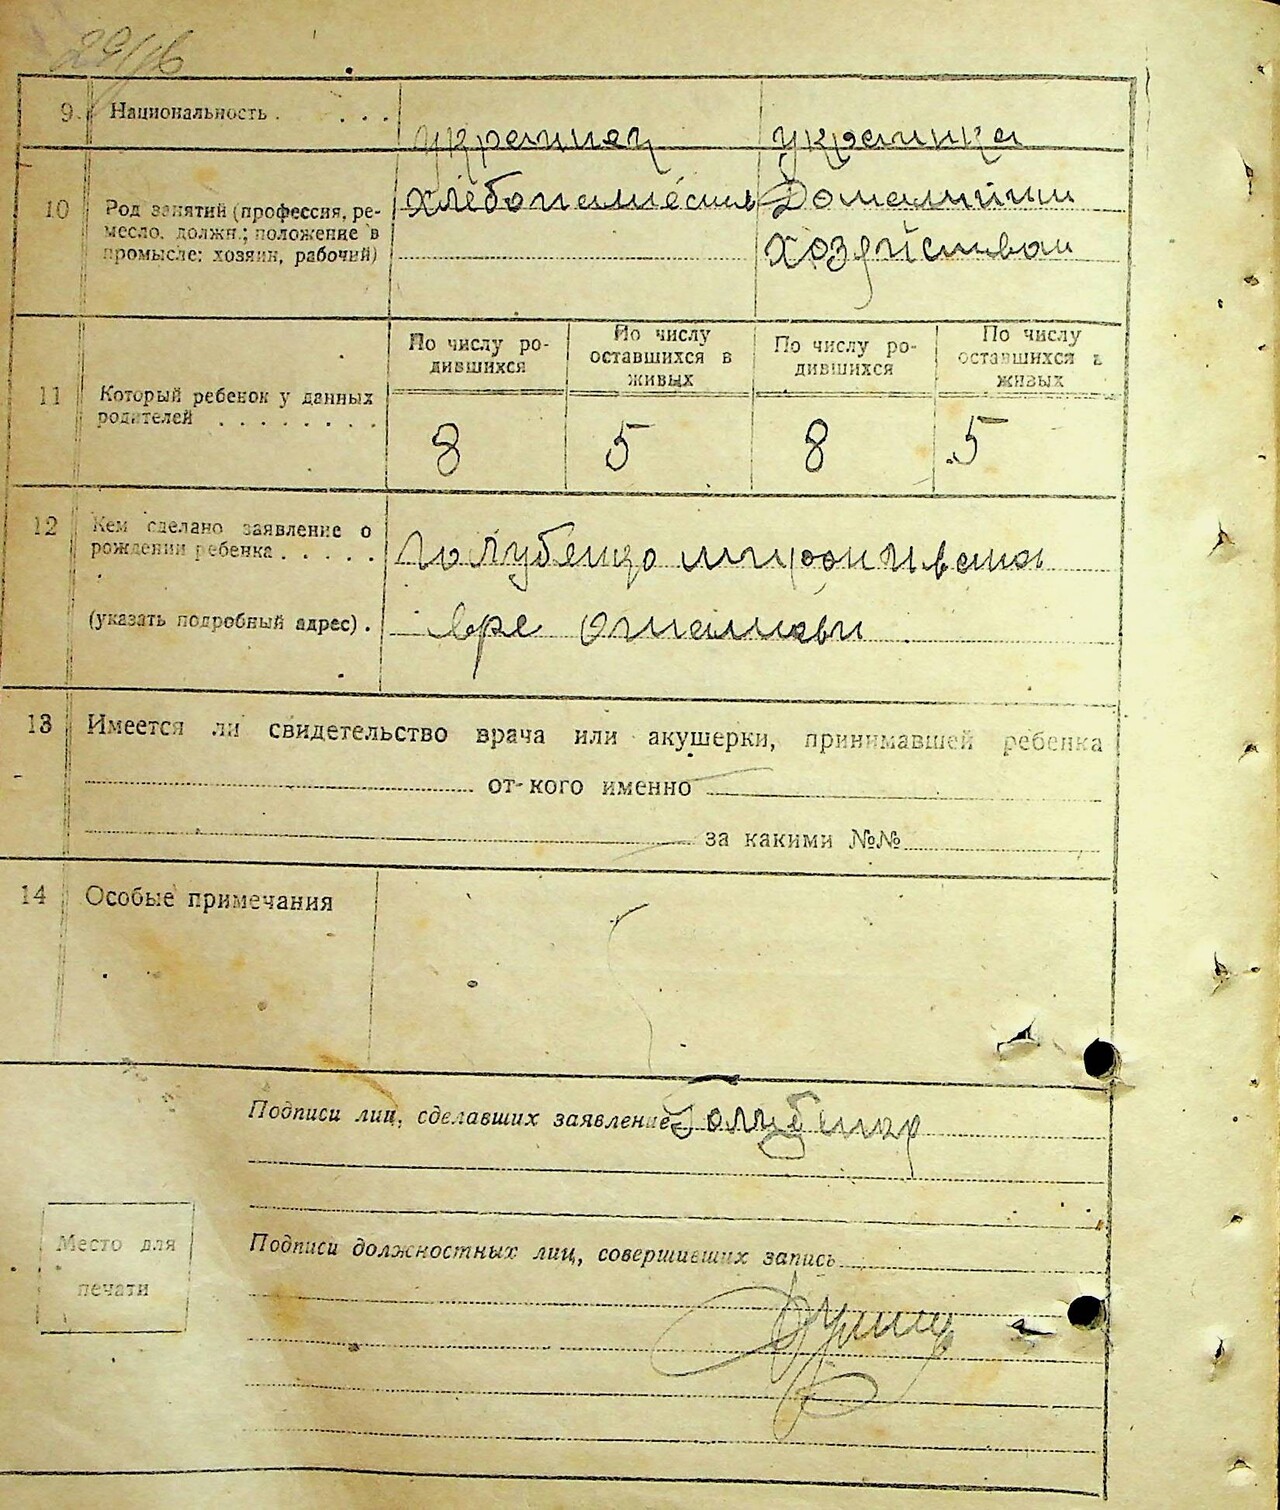 9. Национальность . . . .
украинец украинка
10 Род занятий (профессия, ре-
месло, должн.; положение в
промысле: хозяин, рабочий)
хлебопашеств Домашним
хозяйством
По числу ро-
дившихся
По числу
оставшихся в
живых
По числу ро-
дившихся
По числу
оставшихся в
живых
11 Который ребенок у данных
родителей . . . . . . . .
8 5 8 5
12 Кем сделано заявление о
рождении ребенка . . . . .
(указать подробный адрес) .
13 Имеется ли свидетельство врача или акушерки, принимавшей ребенка
от кого именно
за какими №№
14 Особые примечания
Подписи лиц, сделавших заявление
Подписи должностных лиц, совершивших запись
Место для
печати